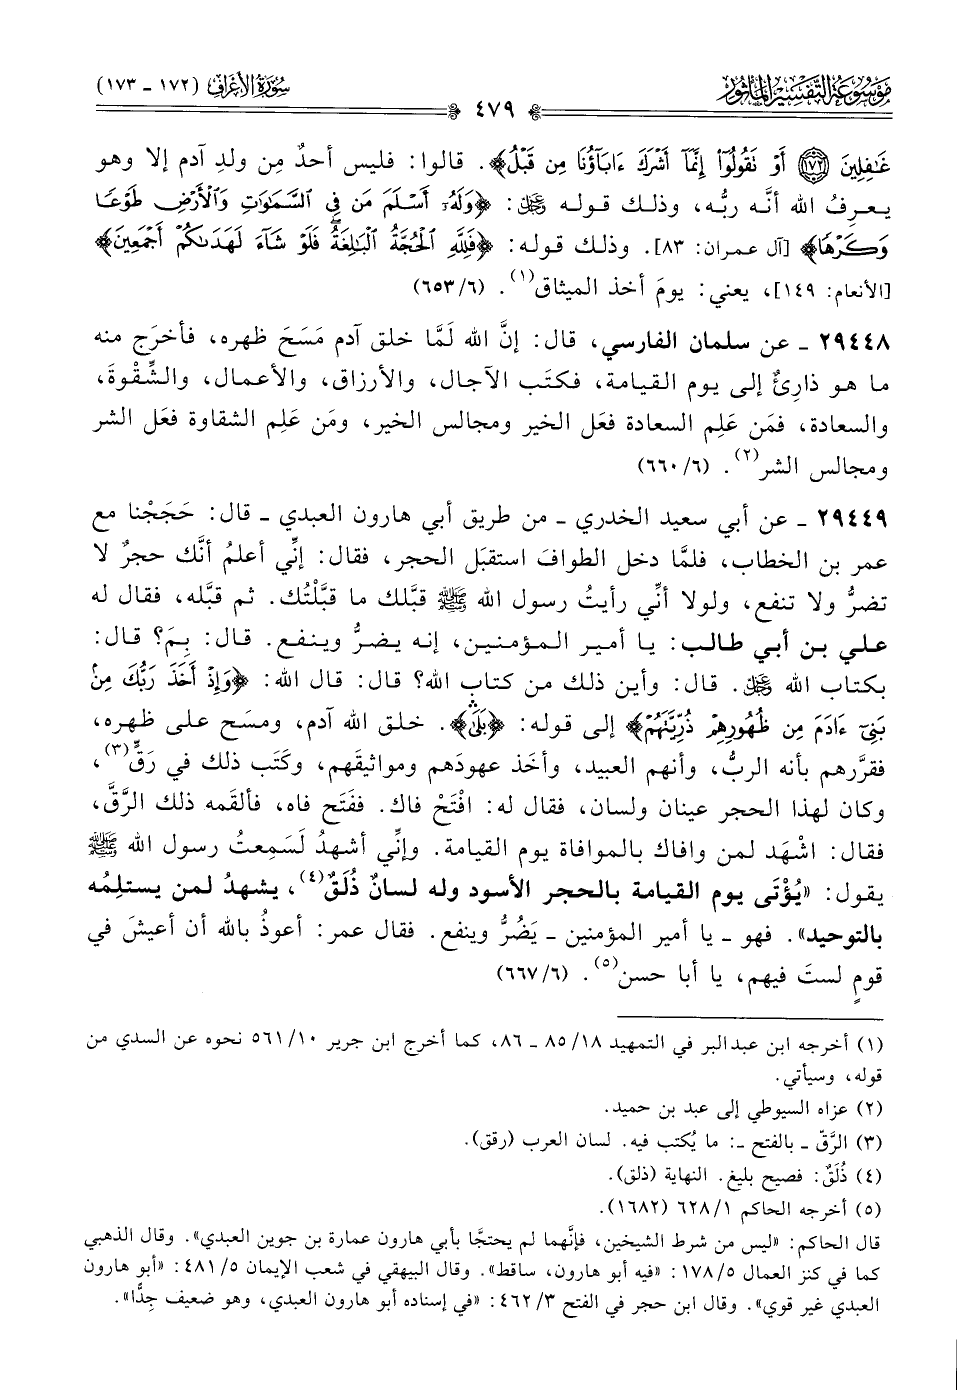 مَوْسُوعَة التَّفْسِير المَأْثُور
سُورَةُ الأَعْرَاف (١٧٢ ـ ١٧٣)
٤٧٩
غَٰفِلِينَ ١٧٢ أَوْ تَقُولُوٓا۟ إِنَّمَآ أَشْرَكَ ءَابَآؤُنَا مِن قَبْلُ﴾. قالوا: فليس أحدٌ مِن ولدِ آدم إلا وهو
يعرِفُ الله أنَّه ربُّه، وذلك قوله ﷿: ﴿وَلَهُۥٓ أَسْلَمَ مَن فِى ٱلسَّمَٰوَٰتِ وَٱلْأَرْضِ طَوْعًا
وَكَرْهًا﴾ [آل عمران: ٨٣]. وذلك قوله: ﴿فَلِلَّهِ ٱلْحُجَّةُ ٱلْبَٰلِغَةُ فَلَوْ شَآءَ لَهَدَىٰكُمْ أَجْمَعِينَ﴾
[الأنعام: ١٤٩]، يعني: يومَ أخذ الميثاق(١). (٦/ ٦٥٣)
٢٩٤٤٨ ـ عن سلمان الفارسي، قال: إنَّ الله لَمَّا خلق آدم مَسَحَ ظهره، فأخرَج منه
ما هو ذارِئٌ إلى يوم القيامة، فكتَب الآجال، والأرزاق، والأعمال، والشِّقْوةَ،
والسعادة، فمَن عَلِم السعادة فعَل الخير ومجالس الخير، ومَن عَلِم الشقاوة فعَل الشر
ومجالس الشر(٢). (٦/ ٦٦٠)
٢٩٤٤٩ ـ عن أبي سعيد الخدري ـ من طريق أبي هارون العبدي ـ قال: حَجَجْنا مع
عمر بن الخطاب، فلمَّا دخل الطوافَ استقبَل الحجر، فقال: إنِّي أعلمُ أنَّك حجرٌ لا
تضرُّ ولا تنفع، ولولا أنِّي رأيتُ رسول الله ﷺ قبَّلك ما قبَّلْتُك. ثم قبَّله، فقال له
علي بن أبي طالب: يا أمير المؤمنين، إنه يضرُّ وينفع. قال: بِمَ؟ قال:
بكتاب الله ﷿. قال: وأين ذلك من كتاب الله؟ قال: قال الله: ﴿وَإِذْ أَخَذَ رَبُّكَ مِنۢ
بَنِىٓ ءَادَمَ مِن ظُهُورِهِمْ ذُرِّيَّتَهُمْ﴾ إلى قوله: ﴿بَلَىٰ﴾. خلق الله آدم، ومسَح على ظهره،
فقرَّرهم بأنه الربُّ، وأنهم العبيد، وأخَذ عهودَهم ومواثيقَهم، وكَتَب ذلك في رَقٍّ(٣)،
وكان لهذا الحجر عينان ولسان، فقال له: افْتَحْ فاك. ففَتَح فاه، فألقَمه ذلك الرَّقَّ،
فقال: اشْهَد لمن وافاك بالموافاة يوم القيامة. وإنِّي أشهدُ لَسَمِعتُ رسول الله ﷺ
يقول: «يُؤْتَى يوم القيامة بالحجر الأسود وله لسانٌ ذُلَقٌ(٤)، يشهدُ لمن يستلِمُه
بالتوحيد». فهو ـ يا أمير المؤمنين ـ يَضُرُّ وينفع. فقال عمر: أعوذُ بالله أن أعيشَ في
قومٍ لستَ فيهم، يا أبا حسن(٥). (٦/ ٦٦٧)
(١) أخرجه ابن عبدالبر في التمهيد ١٨/ ٨٥ ـ ٨٦، كما أخرج ابن جرير ١٠/ ٥٦١ نحوه عن السدي من
قوله، وسيأتي.
(٢) عزاه السيوطي إلى عبد بن حميد.
(٣) الرَّقّ ـ بالفتح ـ: ما يُكتب فيه. لسان العرب (رقق).
(٤) ذُلَقٌ: فصيح بليغ. النهاية (ذلق).
(٥) أخرجه الحاكم ١/ ٦٢٨ (١٦٨٢).
قال الحاكم: «ليس من شرط الشيخين، فإنَّهما لم يحتجَّا بأبي هارون عمارة بن جوين العبدي». وقال الذهبي
كما في كنز العمال ٥/ ١٧٨: «فيه أبو هارون، ساقط». وقال البيهقي في شعب الإيمان ٥/ ٤٨١: «أبو هارون
العبدي غير قوي». وقال ابن حجر في الفتح ٣/ ٤٦٢: «في إسناده أبو هارون العبدي، وهو ضعيف جِدًّا».